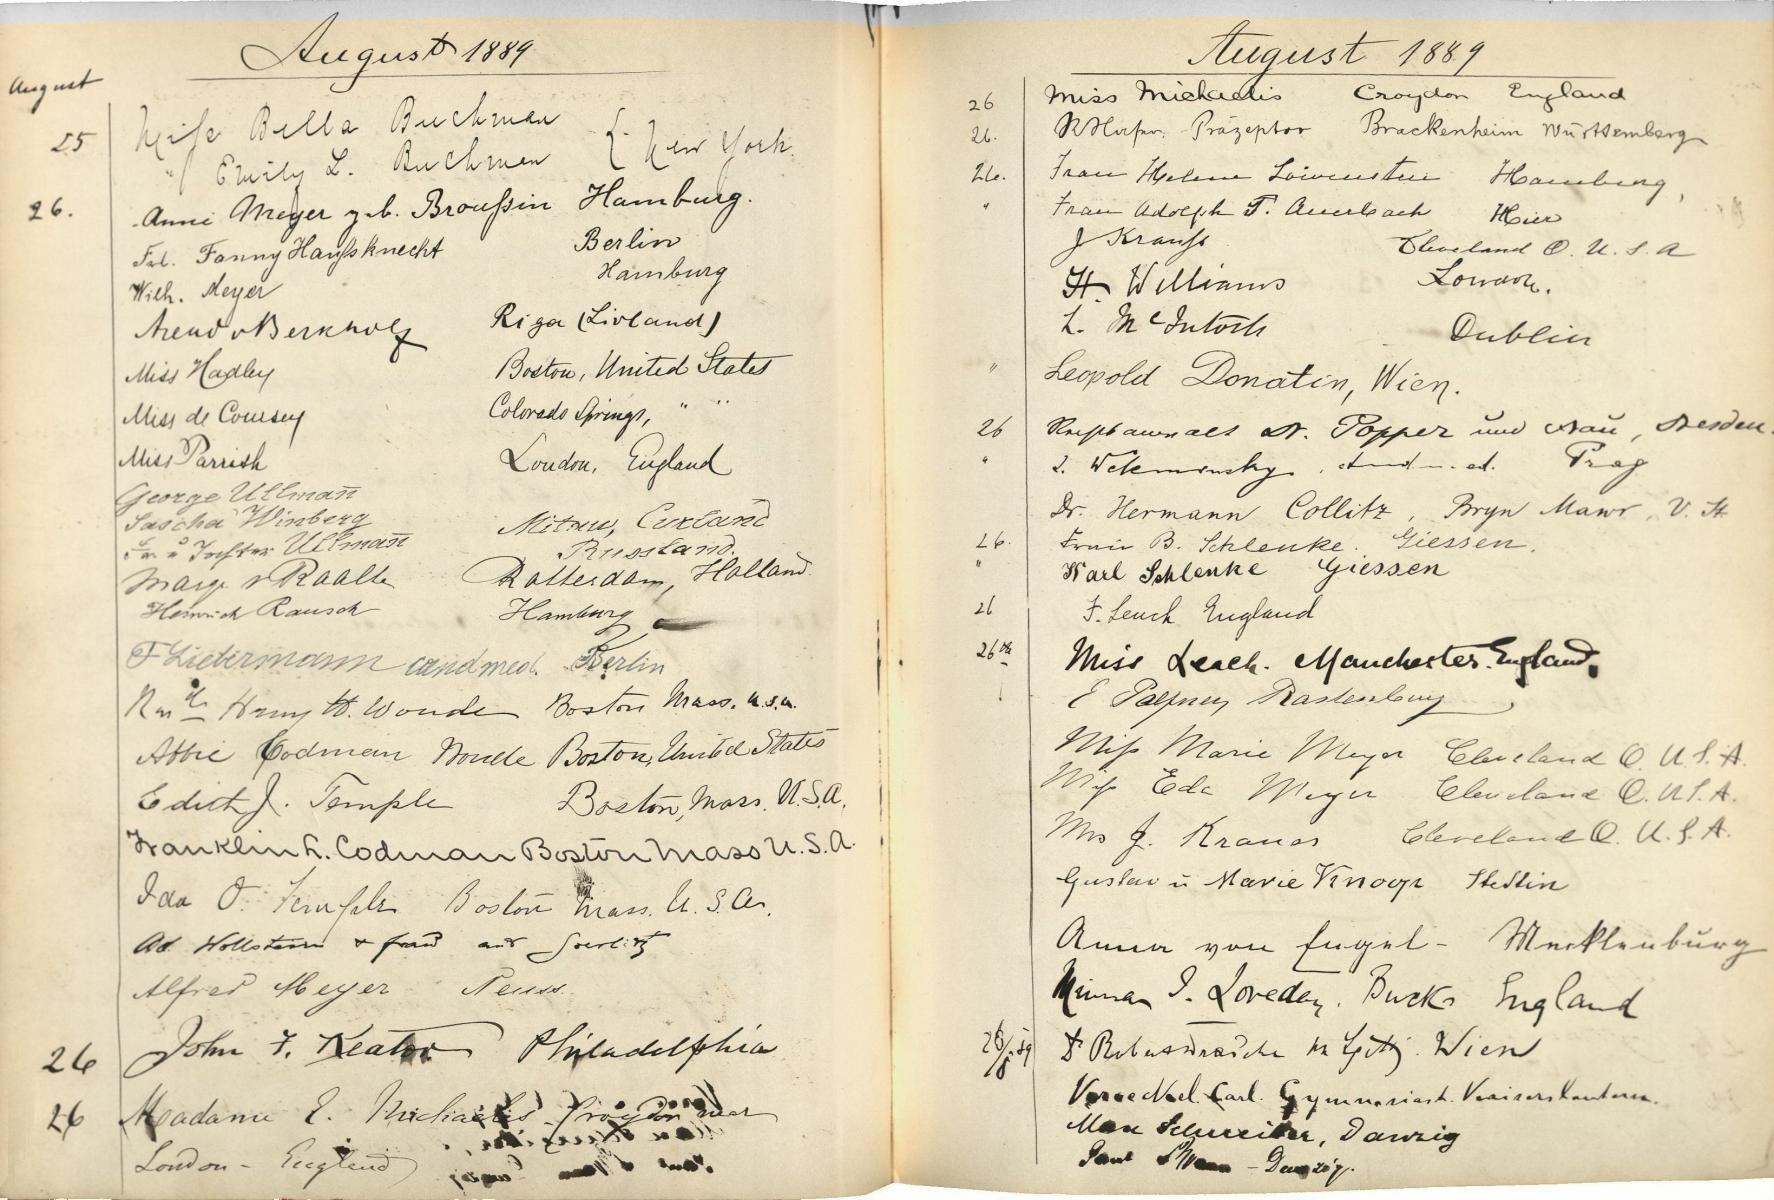 August 1889
August
25 Miss Bella Buchman
" Emily L. Buchman { New York.
26. Anni Meyer geb. Broußin Hamburg.
Frl. Fanny Haußknecht Berlin
Wilh. Meyer Hamburg
Arend v Berkholz Riga (Livland)
Miss Hadley Boston, United States
Miss de Coursey Colorado Springs, " "
Miss Parrish London, England
George Ullmañ
Sascha Winberg Mitau, Curland
Fr. u Tochter Ullmañ Russland.
Marg. v Raalte Rotterdam, Holland
Heinrich Rausch Hamburg
F Liebermann cand med. Berlin
Henry H. Woude Boston Mass. U.S.A.
Abbie Codman Woude Boston, United States
Edith J. Temple Boston, Mass. U.S.A.
Franklin L. Codman Boston Mass U.S.A.
Ida O. Temple Boston Mass. U.S.A.
Ad. Wollstein & frau aus Goerlitz
Alfred Meyer Neuss.
26 John F. Keator Philadelphia
26 Madame E. Michaelis Croydon near
London - England
August 1889
26 Miss Michaelis Croydon England
26. Präzeptor Brackenheim Württemberg
26. Frau Helene Löwenstein Hamburg,
" Frau Adolph T. Auerbach Hier
J Krauss Cleveland O. U.S.A
H. Williams London.
L. McIntosh Dublin
" Leopold Donatin, Wien.
26 Rechtsanwalt Dr. Popper und Frau, Dresden.
" stud. med. Prag
Dr. Hermann Collitz, Bryn Mawr, V. St.
26. Frau B. Schlenke. Giessen.
" Karl Schlenke Giessen
26 F. Leech England
26th Miss Leech. Manchester. England.
E Rastenburg
Miss Marie Meyer Cleveland O. U.S.A.
Miss Eda Meyer Cleveland O. U.S.A.
Mrs J. Kraus Cleveland O. U.S.A.
Gustav u Marie Knoop Stettin
Anna von Engel - Mecklenburg
Minna I. Loveday. Bucks England
26/8 89 Dr Wien
Carl. Gymnasiast. Kaiserslautern.
Max Schneider, Danzig
Paul - Danzig.